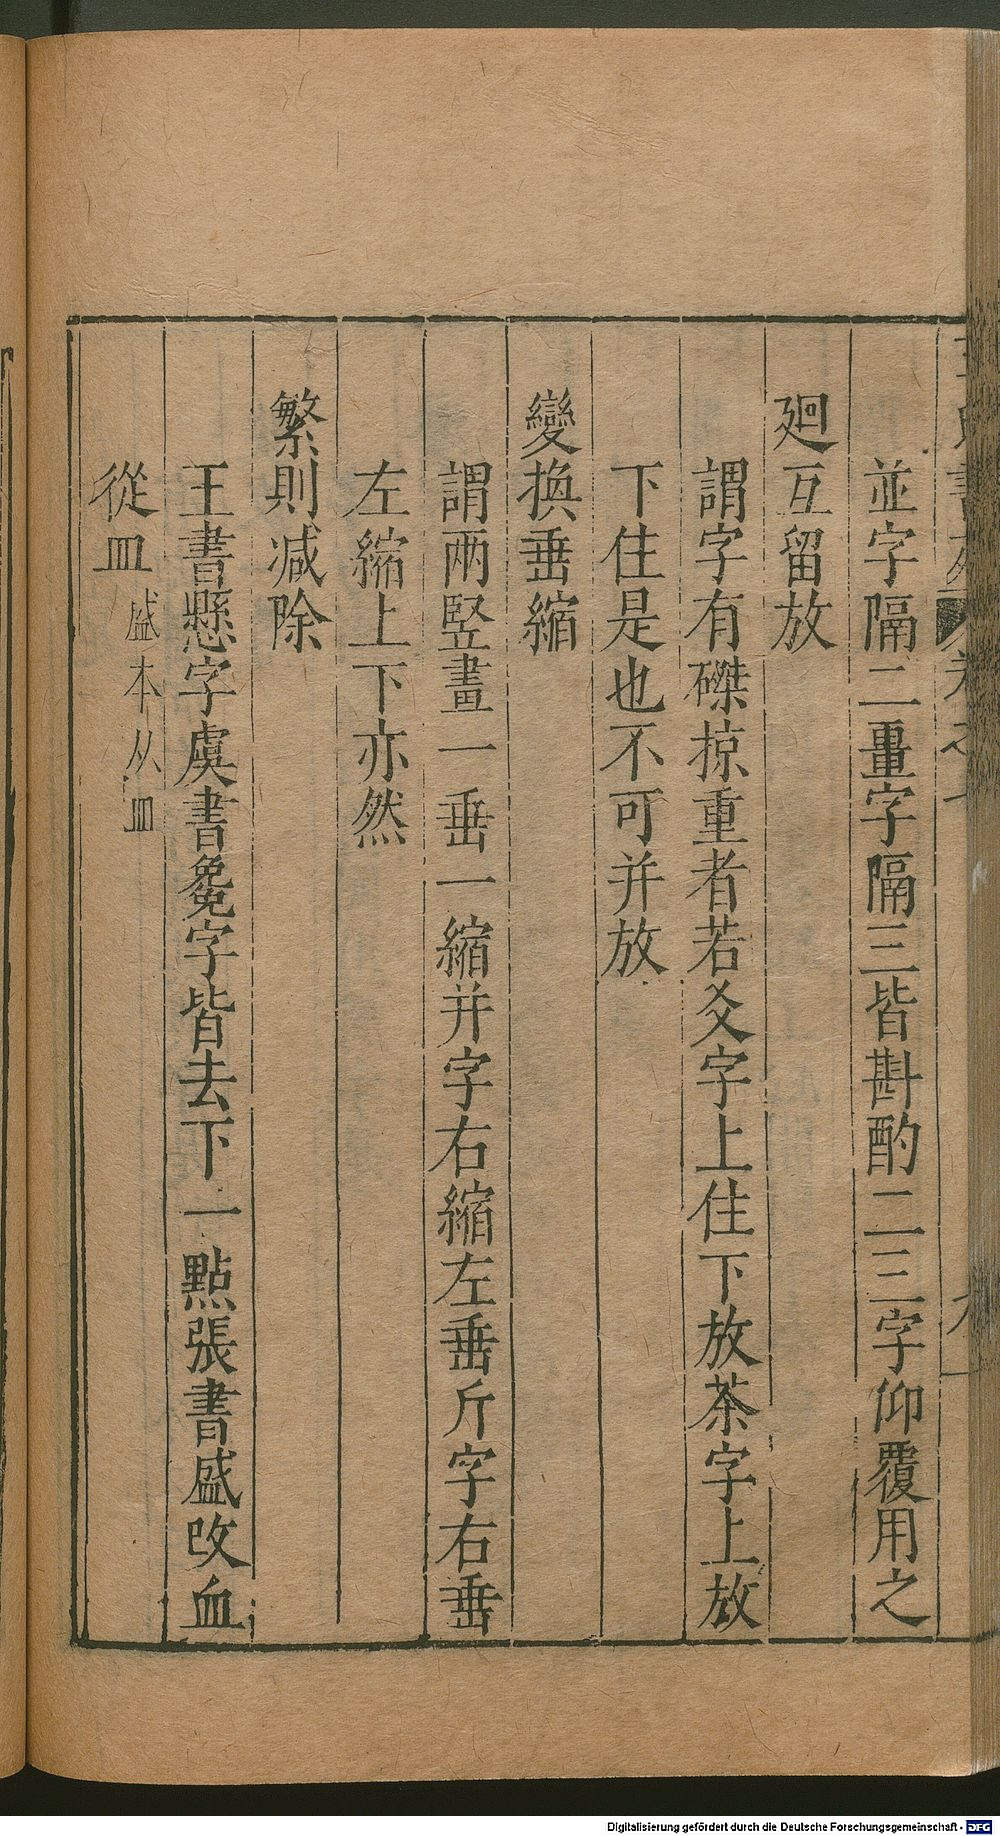 並字隔二畫字隔三皆斟酌二三字仰覆用之
廻互留放
謂字有磔掠重者若爻字上住下放茶字上放
下住是也不可并放
變換垂縮
謂兩竪畫一垂一縮并字右縮左垂斤字右垂
左縮上下亦然
繁則減除
王書懸字虞書毚字皆去下一點張書盛改血
從皿
盛本从皿
Digitalisierung gefördert durch die Deutsche Forschungsgemeinschaft - DFG